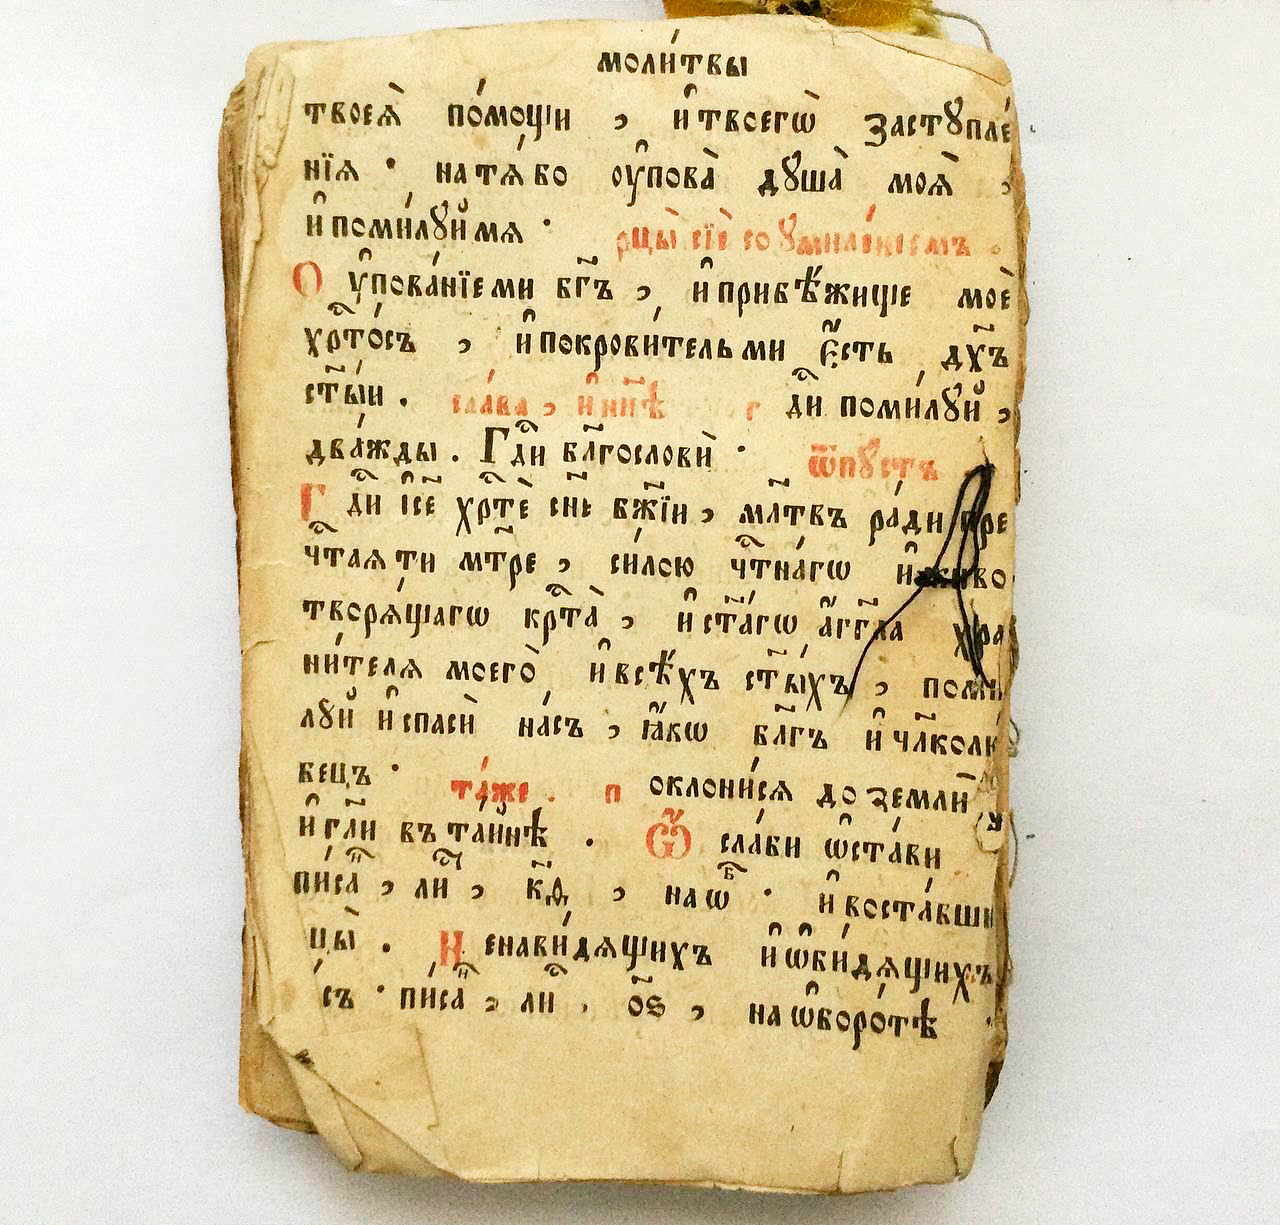 моли́твы
твоеѧ̀ по́мощи , и҆ твоегѡ̀ застꙋпле́
нїѧ · на тѧ́ бо оу҆пова̀ дꙋша̀ моѧ̀ ,
и҆ поми́лꙋй мѧ · рцы̀ сїѐ со ꙋмиле́нїемъ .
Оу҆пова́нїе ми бг҃ъ , и҆ прибѣ́жище моѐ
хрⷭ҇то́съ , и҆ покрови́тель ми є҆́сть дх҃ъ
ст҃ы́и . сла́ва , и҆ нн҃ѣ г дⷭ҇и поми́лꙋй ,
два́жды . Гдⷭ҇и бл҃гословѝ · ѿпꙋстъ
Гдⷭ҇и і҆се҃ хрⷭ҇тѐ сн҃е бж҃їи , мл҃твъ ра́ди пре
чⷭ҇таѧ ти мт҃ре , си́лою чⷭ҇тна́гѡ и҆ живо
творѧ́щагѡ крⷭ҇та̀ , и҆ ст҃а́гѡ а҆́гг҃ла хра
ни́телѧ моего̀ , и҆ всѣ́хъ ст҃ы́хъ , поми́
лꙋй и҆ спасѝ на́съ , ꙗ҆́кѡ бл҃гъ и҆ чл҃колю́
бецъ · та́же . поклони́сѧ до землѝ
и҆ гл҃и въ та́йнѣ . Ѽ сла́би ѡ҆ста́ви
пи́саⷩ҇ , лиⷭ҇ , к҃ѳ , на ѡⷠ҇ · и҆ воста́вши
цы̀ . Ненави́дѧщихъ и҆ ѡ҆би́дѧщихъ
съ · пи́саⷩ҇ , лиⷭ҇ . о҃ѕ , на ѡ҆боро́тѣ ·